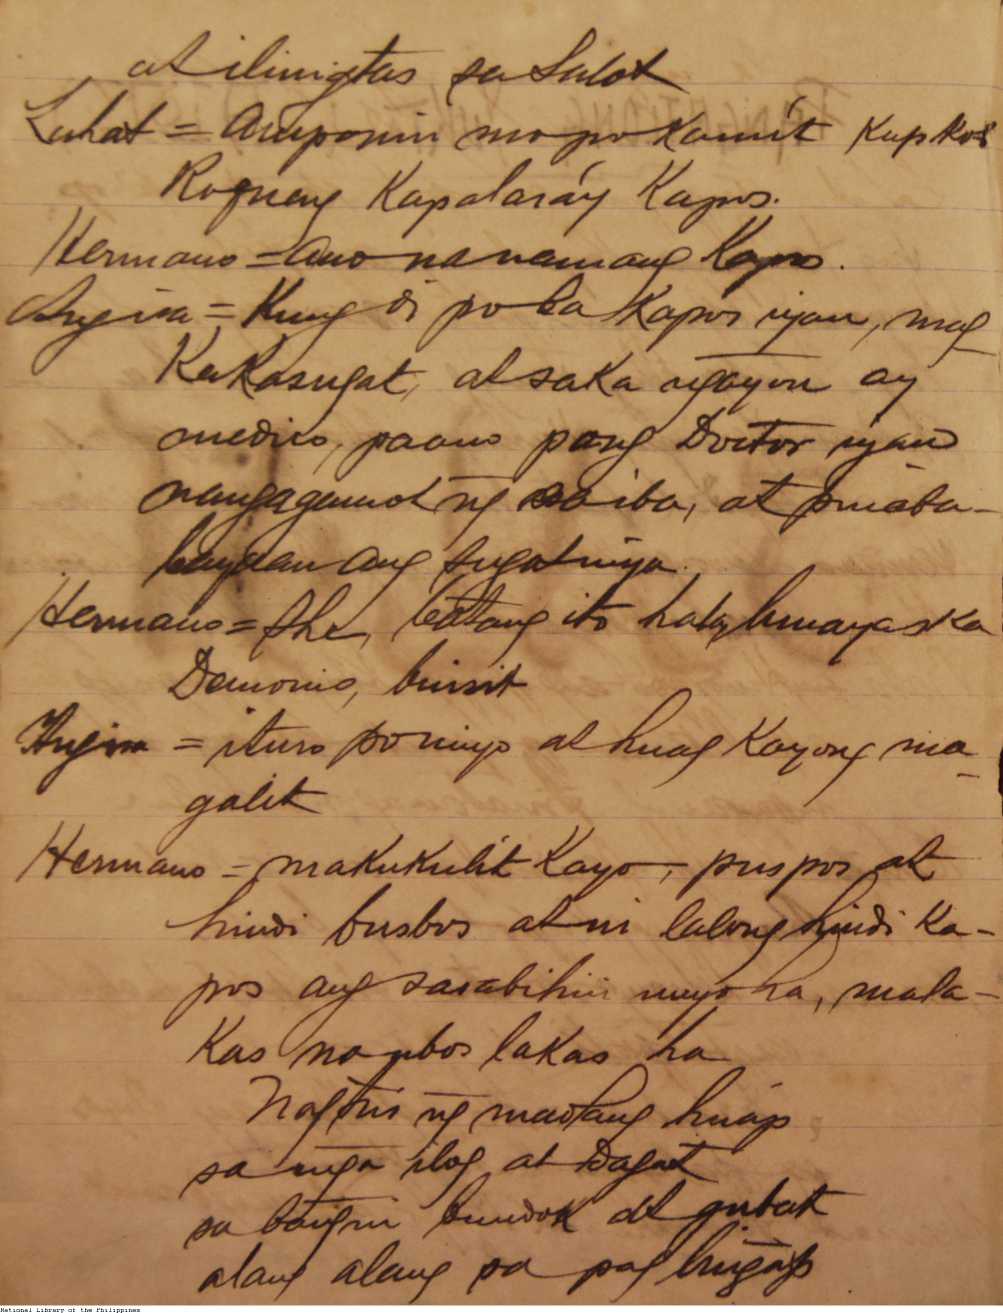 at ilinigtas sa Salot
Lahat = Amponin mo po kamit kupkos
Roqueng Kapalaráy Kapos.
Hermano = ano na namang Kapos.
Angina = Kung di po ba Kapos iyan, mag
Kakasugat, at saka ngayon ay
medico, paano pang Doctor iyan
nangagamot ng sa iba, at pinaba-
bayaan ang sugat niya.
Hermano = She, batang ito hala, lumayas ka
Demonio, bwisit
Angina = ituro po ninyo at huag Kayong ma-
galit
Hermano = makukulit Kayo, puspos at
hindi busbos at ni lalong hindi Ka-
pos ang sasabihin ninyo ha, mala-
Kas na ubos lakas ha
Nagtiis ng maotang huap
sa mga ilog at Dagat
sa bangin bundok at gubat
alang alang sa pag lingap
National Library of the Philippines